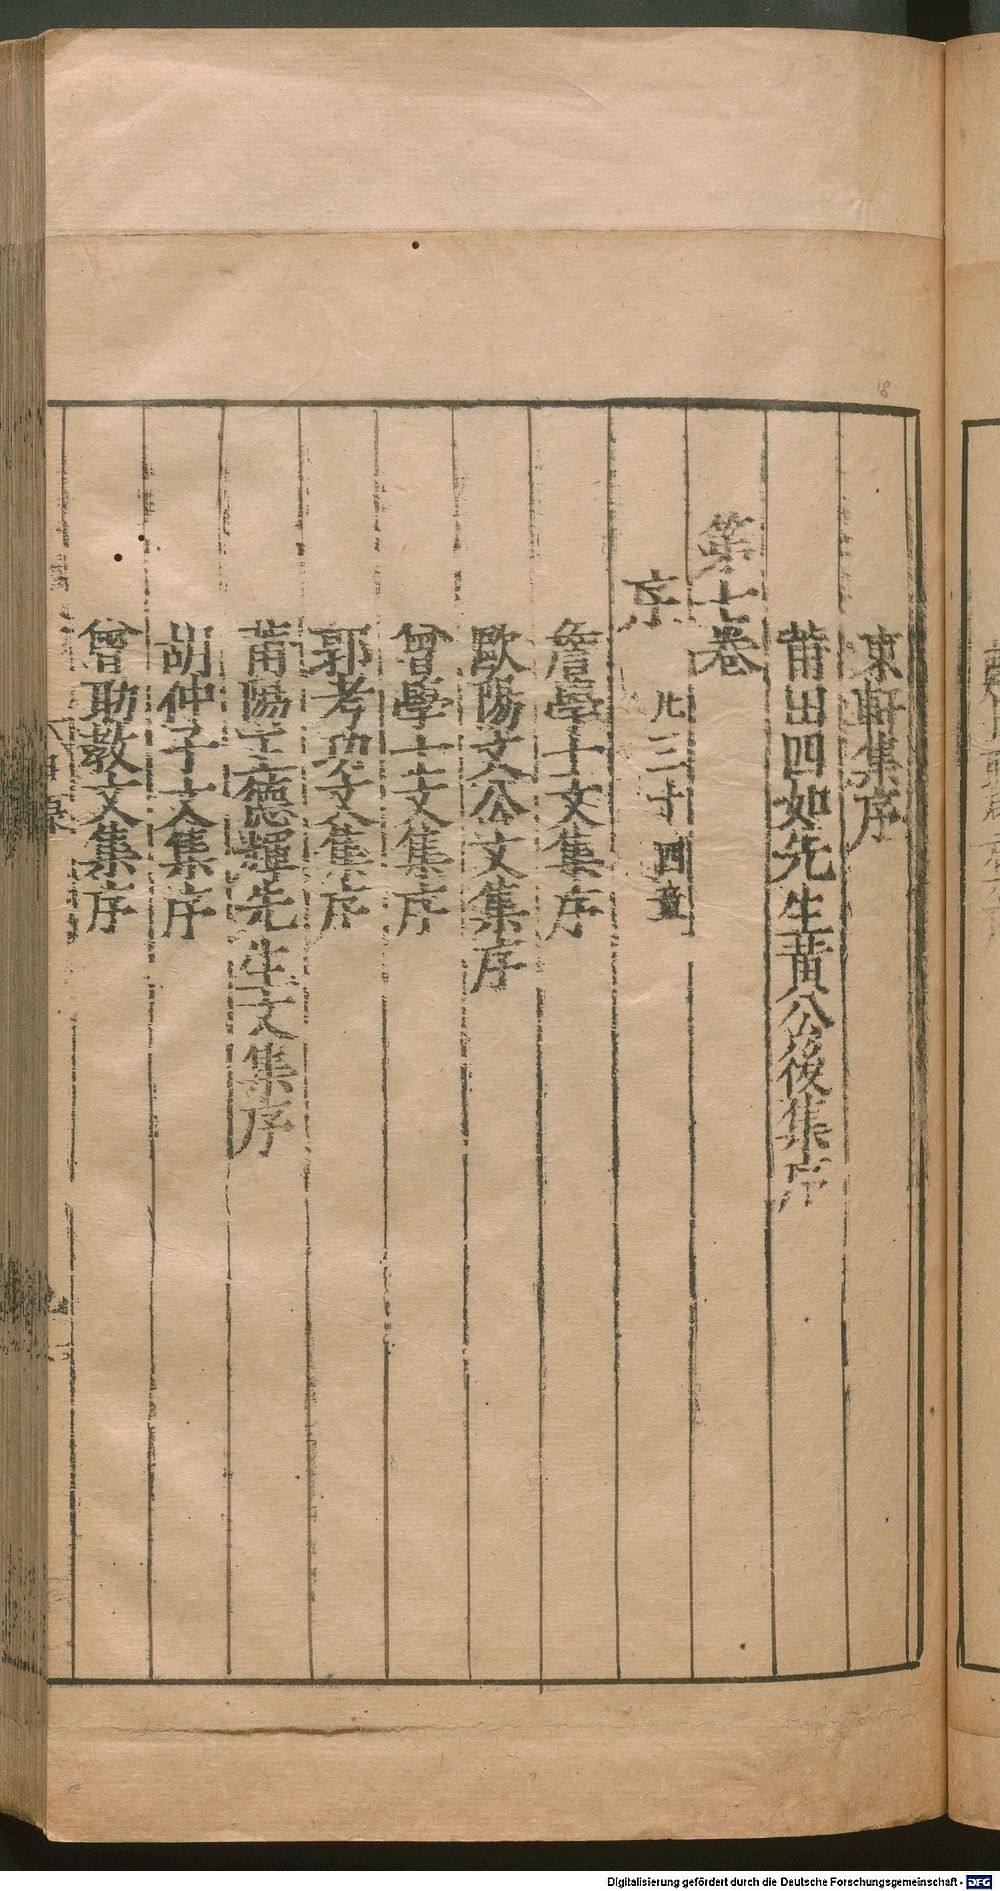 東軒集序
莆出四如先生黃公後集序
第十卷
序 凡三十四章
詹學士文集序
歐陽文公文集序
曾學士文集序
郭考功文集序
莆陽王德輝先生文集序
胡仲子文集序
曾助教文集序
18
Digitalisierung gefördert durch die Deutsche Forschungsgemeinschaft - DFG